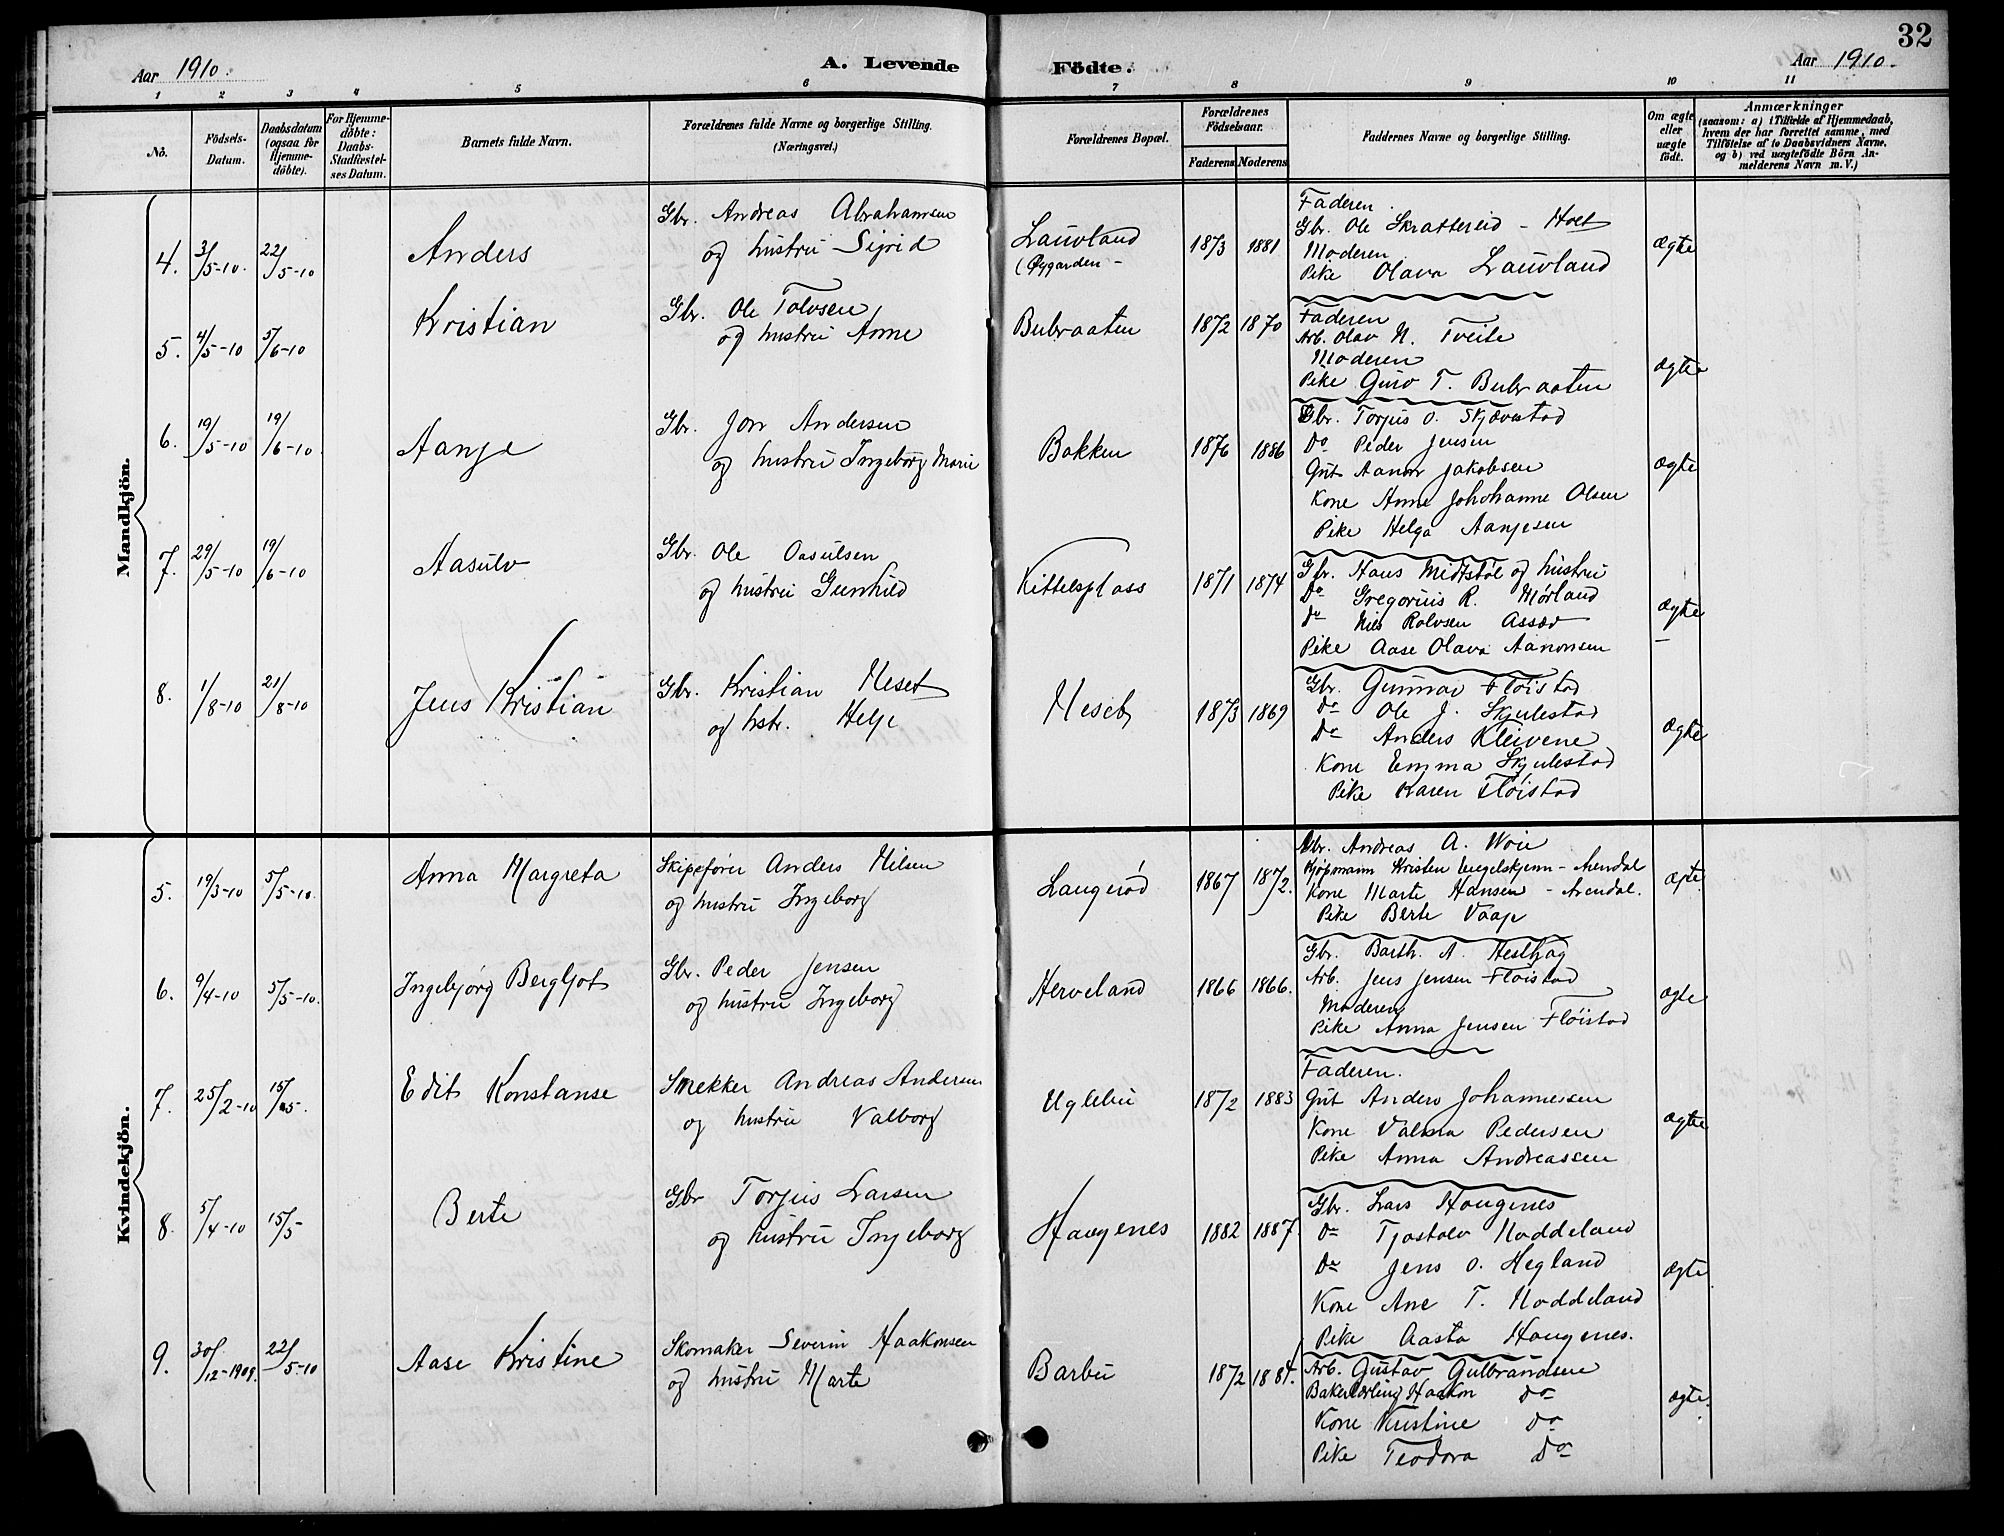 32
Aar 1910.
A. Levende Födte.
Aar 1910.
1 2 3 4 5 6 7 8 9 10 11
No.
Födsels-Datum.
Daabsdatum (ogsaa for Hjemmedöbte).
For Hjemmedöbte: Daabs-Stadfæstelses Datum.
Barnets fulde Navn.
Forældrenes fulde Navne og borgerlige Stilling. (Næringsvei.)
Forældrenes Bopæl.
Forældrenes Födselsaar.
Faderens Moderens
Faddernes Navne og borgerlige Stilling.
Om ægte eller uægte født.
Anmærkninger
(saasom: a) i Tilfælde af Hjemmedaab, hvem der har forrettet samme, med Tilföielse af to Daabsvidners Navne, og b) ved uægtefödte Börn Anmelderens Navn m. V.)
Mandkjön.
4. 3/5-10. 22/5-10 Anders
Gbr. Andreas Abrahamsen
og hustru Sigrid
Lauvland
(Øygarden -
1873 1881
Faderen.
Gbr. Ole Skrattereid - Holt
Moderen
Pike Olava Lauvland
ægte
5. 4/5-10 5/6-10 Kristian
Gbr. Ole Tolvsen
og hustru Anne
Bubraaten
1872 1870
Faderen
Arb. Olav N. Tveite
Moderen
Pike Guro T. Bubraaten
ægte
6. 19/5-10 19/6-10 Aanje
Gbr. Jon Andersen
og hustru Ingeborg Marie
Bakken
1876 1886
Gbr. Torjus O. Skjævestad
Do Peder Jensen
Gut Aanon Jakobsen
Kone Anne Johohanne Olsen
Pike Helga Aanjesen
ægte
7. 29/5-10 19/6-10 Aasulv
Gbr. Ole Oasulsen
og hustru Gunhild
Kittelsplass
1871 1874
Gbr. Hans Midtstøl og hustru
Do Gregorius R. Mørland
Do Nils Rolvsen Assev
Pike Aase Olava Aanonsen
ægte
8. 1/8-10 21/8-10 Jens Kristian
Gbr. Kristian Neset
og hstr. Helje
Neset
1873 1869
Gbr. Gunnar Fløistad
Do Ole J. Skjulestad
Do Anders Kleivene
Kone Emma Skjulestad
Pike Karen Fløistad
ægte
Kvindekjön.
5. 19/3-10 5/5-10. Anna Margreta
Skipsfører Anders Nilsen
og hustru Ingeborg
Langerød
1867 1872.
Gbr. Andreas A.
Kjøpmann Kristen - Arendal
Kone Marte Hansen - Arendal.
Pike Berte Vaaje
ægte
6. 9/4-10 5/5-10. Ingebjørg Bergljot
Gbr. Peder Jensen
og hustru Ingeborg
Herveland
1866 1866.
Gbr. Barth. A. Hesthag
Arb. Jens Jensen Fløistad
Moderen
Pike Anna Jensen Fløistad
ægte
7. 25/2-10 15/5-. Edit Konstanse
Snekker Andreas Andersen
og hustru Valborg
Uglebu
1872 1883
Faderen.
Gut Anders Johannesen
Kone Valma Pedersen
Pike Anna Andreassen
ægte
8. 5/4-10 15/5- Berte
Gbr Torjus Larsen
og hustru Ingeborg
Haugenes
1882 1887.
Gbr. Lars Haugenes
Do Tjostolv Noddeland
Do Jens O. Hegland
Kone Ane T. Noddeland
Pike Aasta Haugenes.
ægte
9. 30/12-1909. 22/5-10 Aase Kristine
Skomaker Severin Haakonsen
og hustru Marte
Barbu
1872 1884.
Arb. Gustav Gulbrandsen
Bakerlærling Haakon Do
Kone Kristine Do
Pike Teodora Do
ægte.